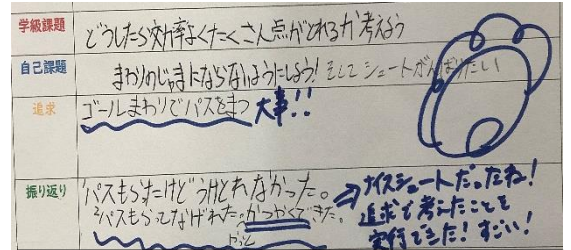 学級課題 どうしたら効率よくたくさん点がとれるか考えよう
自己課題 まわりのじゃまにならないようにしよう! そしてシュートがんばりたい
追求 ゴールまわりでパスをまつ 大事!!
振り返り パスもらったけどうけとれなかった。
2パスもらってなげれた。かつやくできた。
やった
⇒ナイスシュートだったね!
追求で考えたことを
実行できた!すごい!